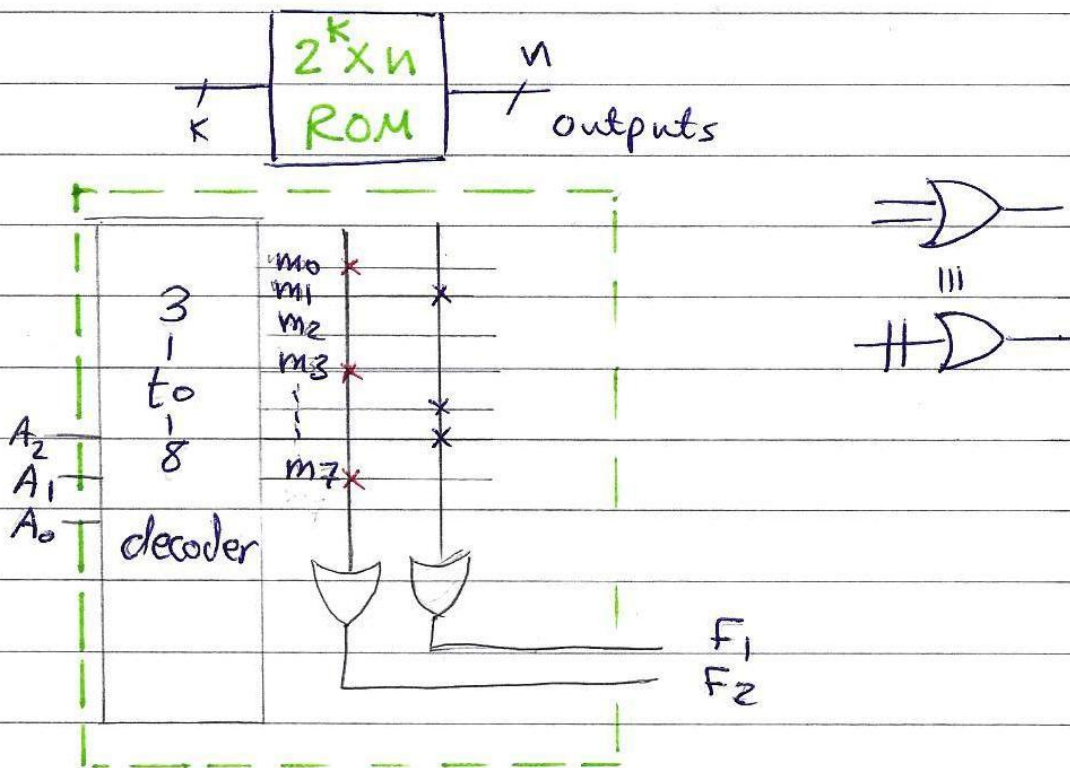 2^K X n
ROM
K
n
outputs
3
to
8
decoder
A2
A1
A0
m0
m1
m2
m3
m7
F1
F2